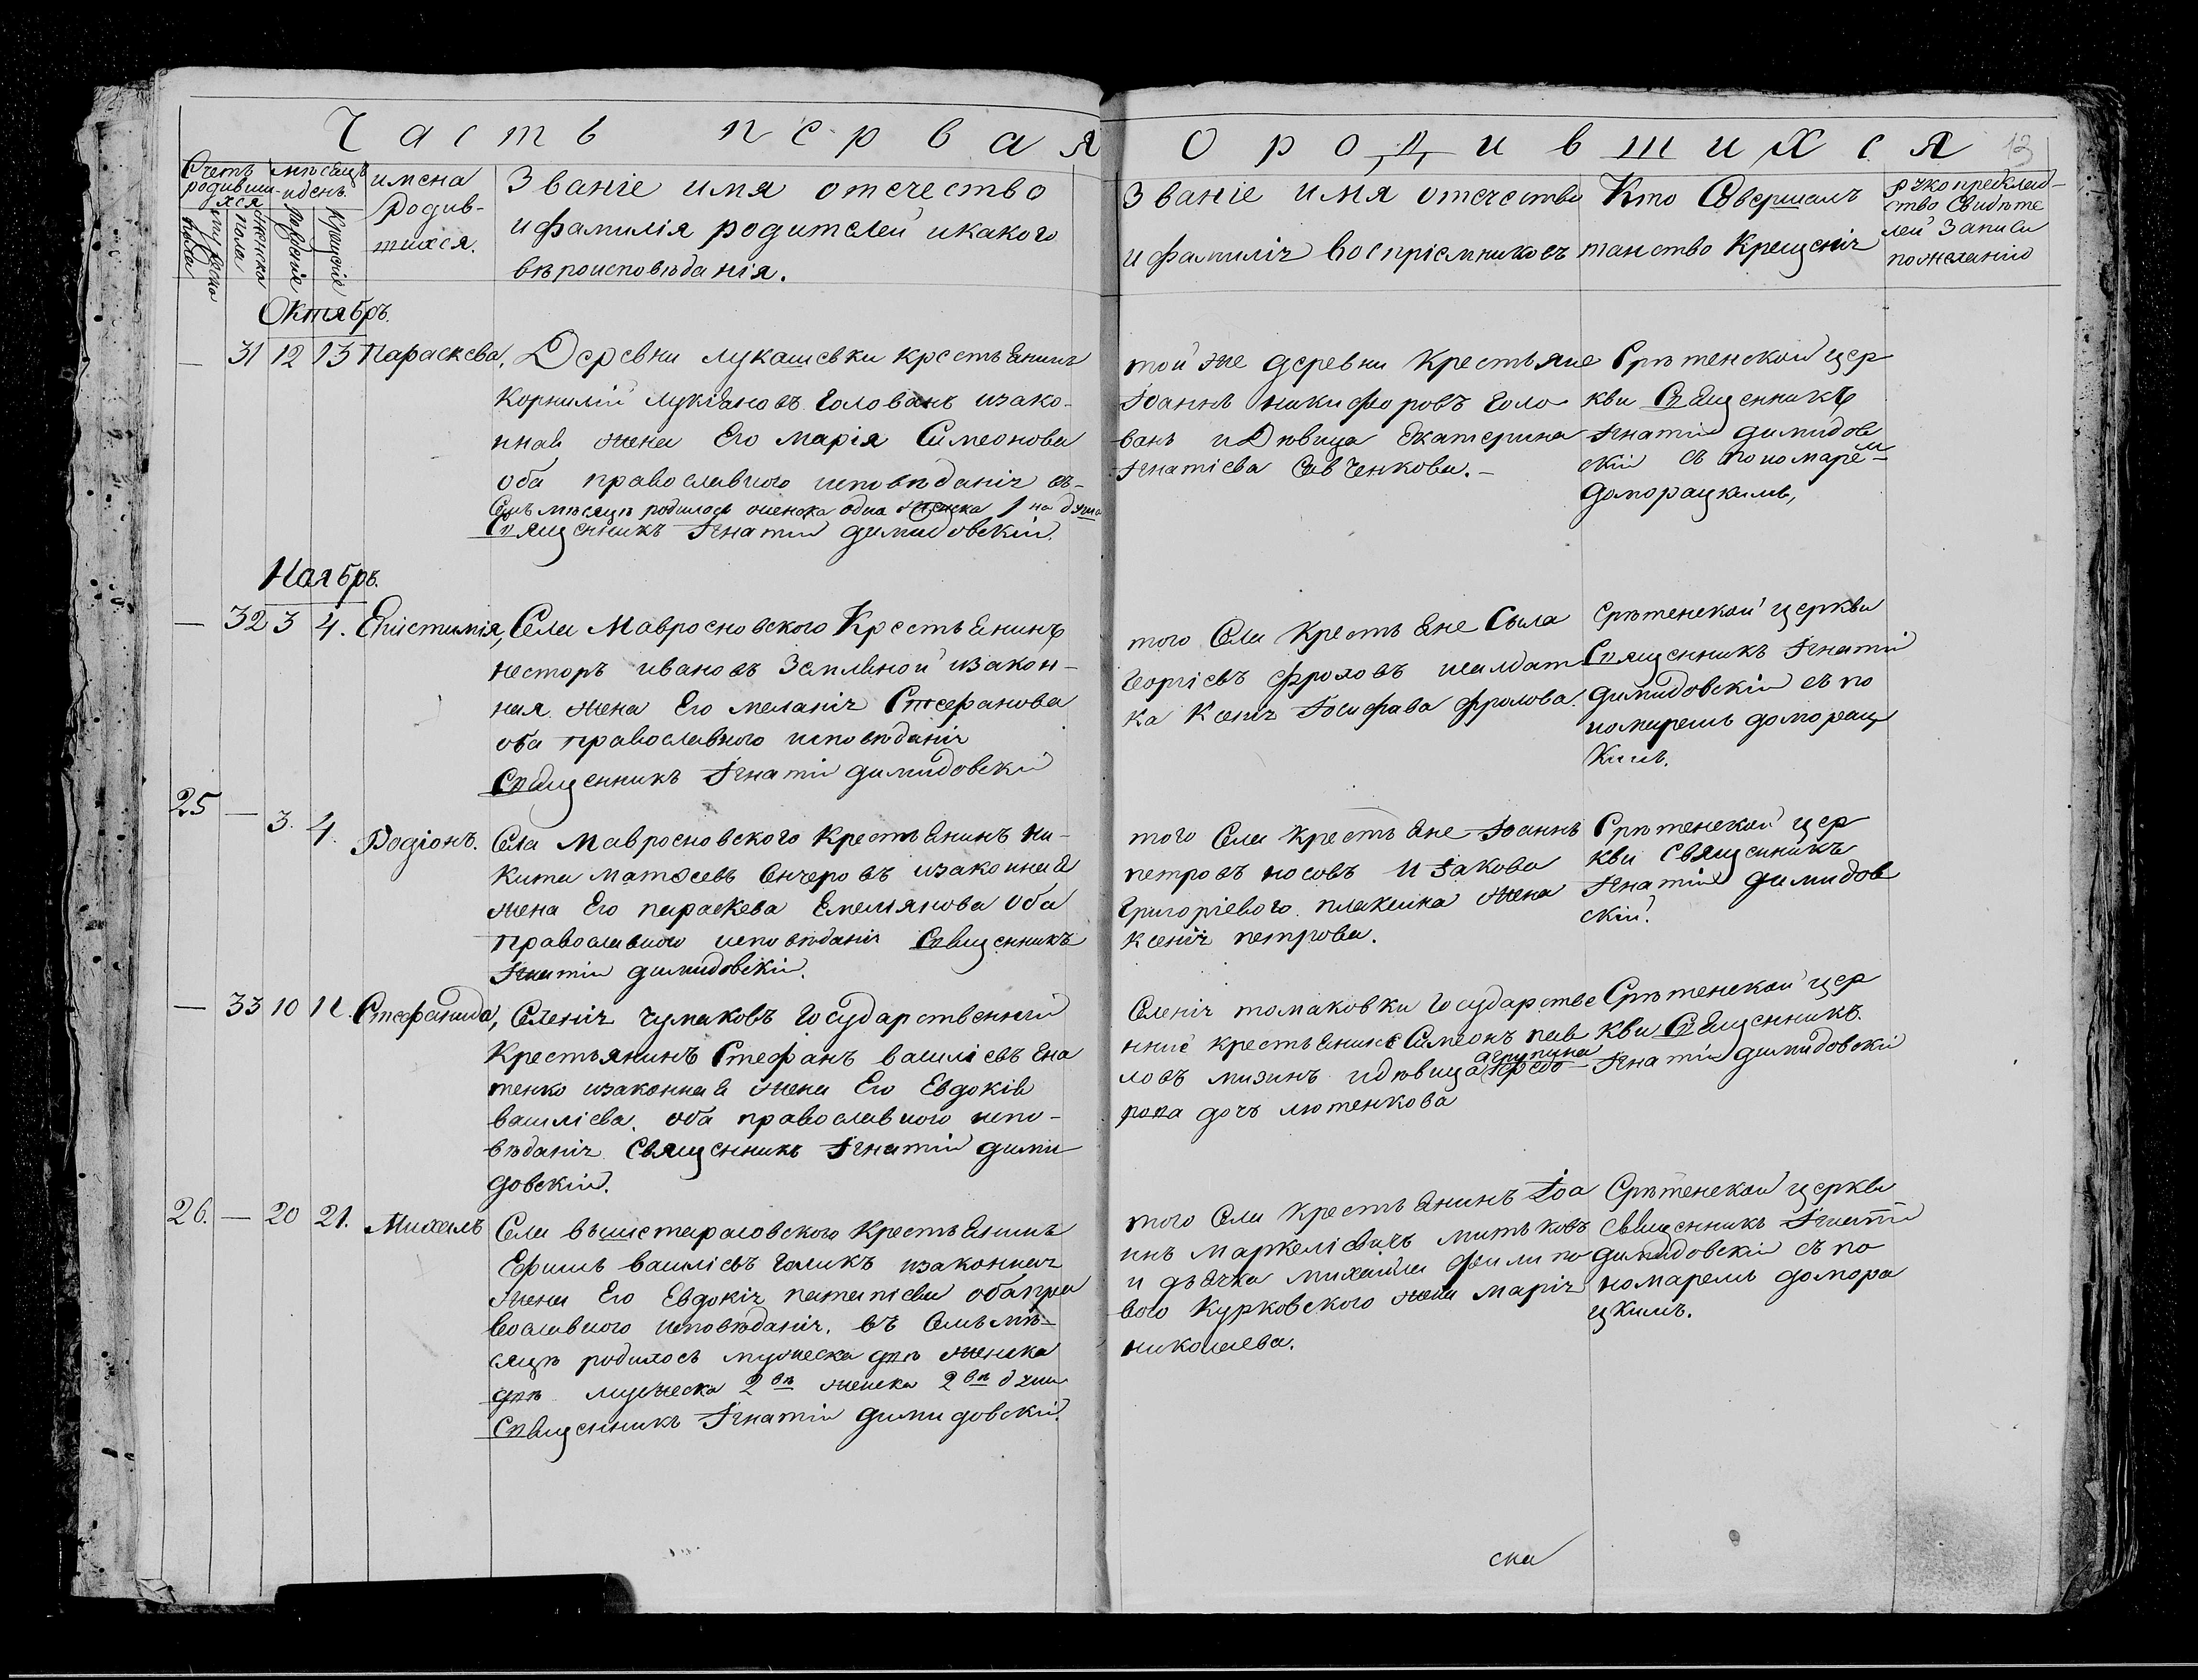 Часть первая
о родившихся
13
Счетъ родивших
ся
мѣсяцъ
и день
мужеска
пола
женска
пола
Рожденіе
Крещеніе
имена
Родив-
шихся.
Званіе имя отечество
и фамилія родителей и какого
вѣроисповѣданія.
Званіе имя отечество
и фамилія воспріемниковъ
Кто Совершалъ
таинство Крещенія
свидѣте
лей Записи
по желанію
Октябръ.
— 31 12 13 Параскева,
Деревни лукашевки крестьянинъ
Корнилій лукіановъ Голованъ и зако-
нная жена Его марія Симеонова
оба православного исповѣданія въ-
Семъ мѣсяцѣ родилось женска одна женска 1 на
Священникъ Ігнатій димидовскій.
той же деревни Крестьяне
Іоаннъ никифоровъ Голо-
ванъ и Дѣвица Екатерина
Ігнатіева Савченкова.—
Срѣтенской цер
кви Священникъ
Ігнатій димидов
скій съ пономаре
доморацкимъ,
Наябръ.
— 32 3 4. Епистимія,
Села Мавросновского Крестьянинъ
несторъ ивановъ Земляной и закон-
ная жена Его меланія Стефанова
оба православного исповѣданія
Священникъ Ігнатій димидовскій
того Села Крестьяне Сыла
Георгіевъ Фроловъ и салдат
ка Ксенія Іосифава Фролова.
Срѣтенской церкви
Священникъ Ігнатій
димидовскій съ по
номаремъ доморац
кимъ.
25 — 3. 4. Родіонъ.
Села Мавросновского Крестьянинъ ни-
кита матѳеевъ и законная
жена Его параскева Емелиянова оба
православного исповѣданія Священникъ
Ігнатій димидовскій.
того Села Крестьяне Іоаннъ
петровъ носовъ и Іакова
Григоріевого плаксина жена
ксенія петрова.
Срѣтенской цер
кви Священникъ
Ігнатій димидов
скій.
— 33 10 11. Стефанида,
Селенія чумаковъ Государственній
Крестьянинъ Стефанъ василіевъ Гна
тенко и законная жена Его Евдокія
василіева. оба православного испо-
вѣданія. Священникъ Ігнатій дими
довскій.
Селенія томаковки Государстве
нніе крестьянинъ Симеонъ пав
ловъ мизинъ и дѣвица агрипина Ѳедо-
рова дочъ лютенкова
Срѣтенской цер
кви Священникъ.
Ігнатій димидовскій
26. — 20 21. Михаилъ
Села вышетарасовского Крестьянинъ
Ефимъ василіевъ Галикъ и законная
жена Его Евдокія патапіева оба пра
вославного исповѣданія. въ Семъ мѣ-
сяцѣ родилось мужеска двѣ женска
двѣ мужеска 2вѣ женска 2вѣ души
Священникъ Ігнатій димидовскій.
того Села Крестьянинъ Іоа
ннъ Маркеліевичъ митьковъ
и дьячка михаила филипо
вого Курковского жена марія
николаева.
Срѣтенской церкви
священникъ Ігнатій
димидовскій съ по
номаремъ домора
цкимъ.
ска